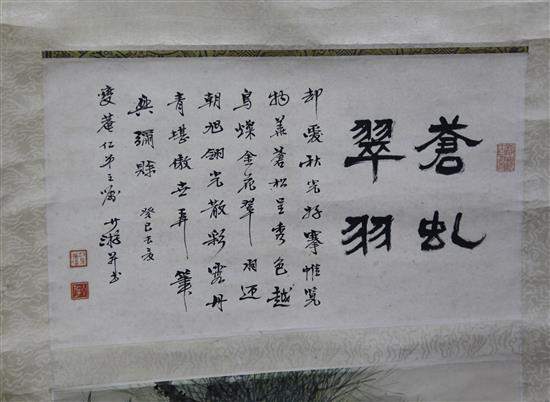 蒼虬
翠羽
却愛秋光好搴帷覽
物華蒼松呈秀色越
鳥燦金花翠羽迎
朝旭翎光散彩霞丹
青堪傲世弄筆
興彌賒 癸巳去夏
雙菴仁弟之囑 少游并书